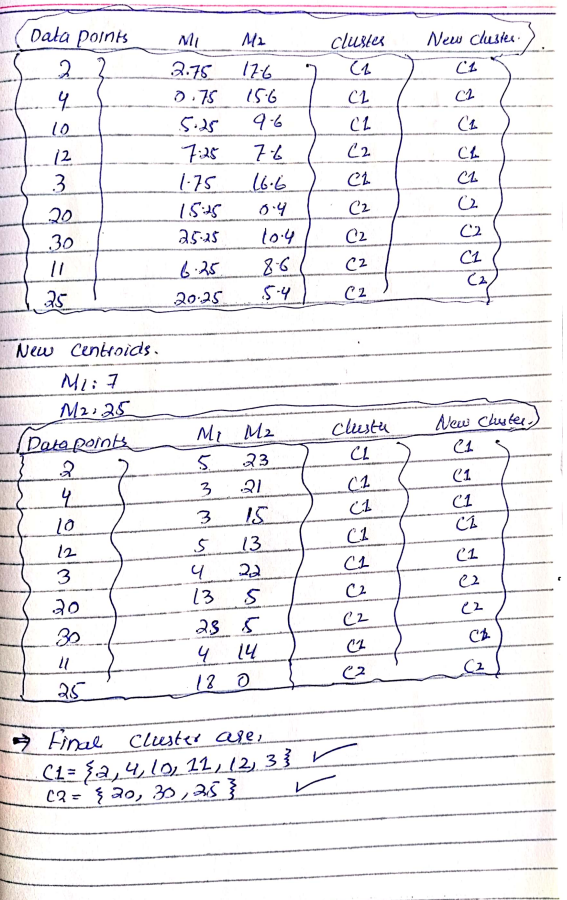 Data points M1 M2 cluster New cluster.
2 2.75 17.6 C1 C1
4 0.75 15.6 C1 C1
10 5.25 9.6 C1 C1
12 7.25 7.6 C2 C1
3 1.75 16.6 C1 C1
20 15.25 0.4 C2 C2
30 25.25 10.4 C2 C2
11 6.25 8.6 C2 C1
25 20.25 5.4 C2 C2
New Centroids.
M1: 7
M2: 25
Data points M1 M2 cluster New cluster.
2 5 23 C1 C1
4 3 21 C1 C1
10 3 15 C1 C1
12 5 13 C1 C1
3 4 22 C1 C1
20 13 5 C2 C2
30 23 5 C2 C2
11 4 14 C1 C1
25 18 0 C2 C2
⇒ Final cluster are,
C1 = {2, 4, 10, 11, 12, 3} ✓
C2 = {20, 30, 25} ✓